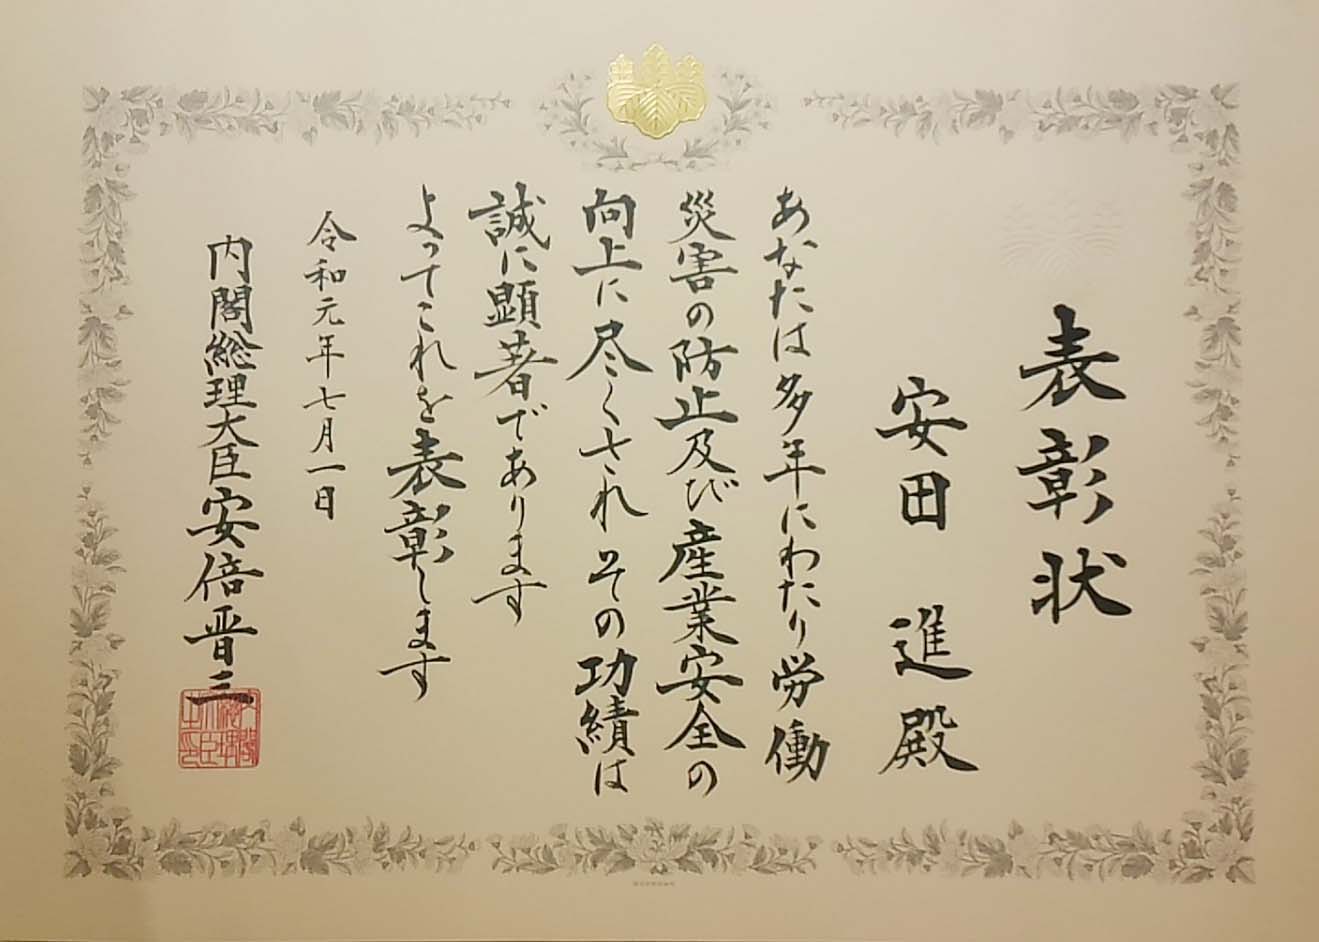 表彰状
安田 進 殿
あなたは多年にわたり労働
災害の防止及び産業安全の
向上に尽くされその功績は
誠に顕著であります
よってこれを表彰します
令和元年七月一日
内閣総理大臣 安倍晋三